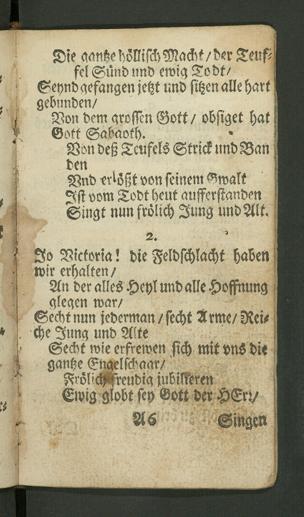 Die gantze höllisch Macht / der Teuf-
fel Sünd und ewig Todt /
Seynd gefangen jetzt und sitzen alle hart
gebunden /
Von dem grossen Gott / obsiget hat
Gott Sabaoth.
Von deß Teufels Strick und Ban
den
Vnd erlößt von seinem Gwalt
Ist vom Todt heut aufferstanden
Singt nun frölich Jung und Alt.
2.
Jo Victoria! die Feldschlacht haben
wir erhalten /
An der alles Heyl und alle Hoffnung
glegen war /
Secht nun jederman / secht Arme / Rei-
che Jung und Alte
Secht wie erfrewen sich mit vns die
gantze Engelschaar /
Frölich freudig jubilieren
Ewig globt sey Gott der HErr /
A6 Singen